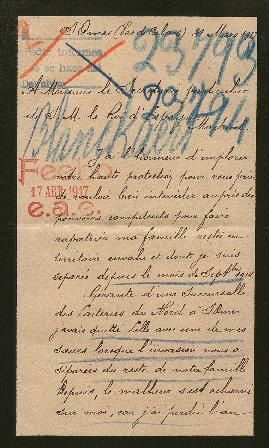 St Omer (Pas de Calais) 31 Mars 1917
23793
A Monsieur le Secrétaire particulier
de S. M. le Roi d'Espagne
23794
Madrid
J'ai l'honneur d'implorer
votre haute protection pour vous prier
de vouloir bien intercéder auprès des
pouvoirs compétents pour faire
rapatrier ma famille restée en
territoire envahi et dont je suis
séparée depuis le mois de Septbre 1914
Fecha
17 ABR. 1917
e.a.c.
Gérante d'une succursale
des Laiteries du Nord à St Omer
j'avais quitté Lille avec une de mes
sœurs lorsque l'invasion nous a
séparées du reste de notre famille
Depuis, le malheur s'est acharné
sur moi, car j'ai perdu l'an-